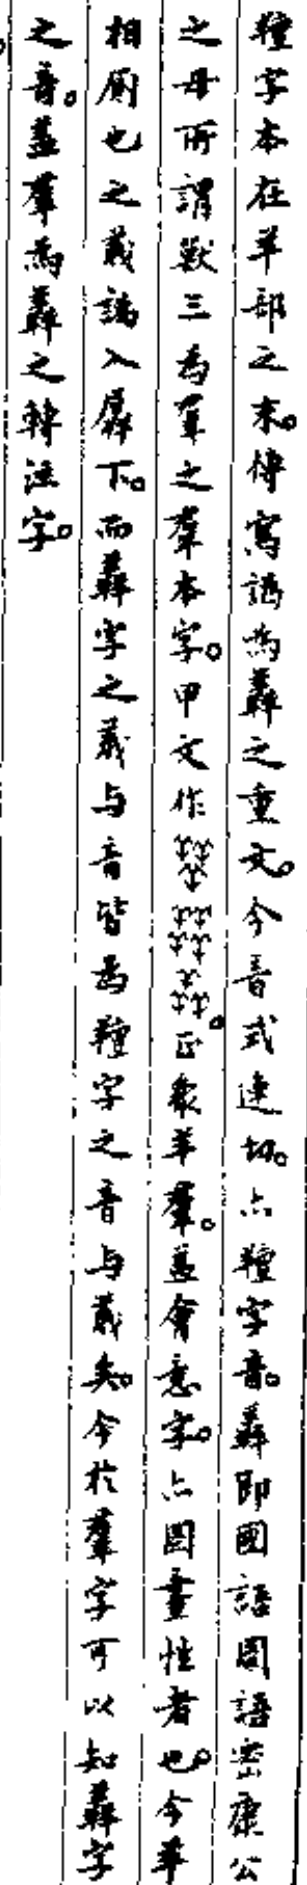 羶字本在羊部之末。傳寫譌為羴之重文。今音式連切。亦羶字音。羴即國語周語密康公
之母所謂獸三為羣之羣本字。甲文作。正象羊羣。蓋會意字。亦圖畫性者也。今羊
相廁也之義譌入羼下。而羴字之義与音皆為羶字之音与義矣。今於羣字可以知羴字
之音。蓋羣為羴之轉注字。